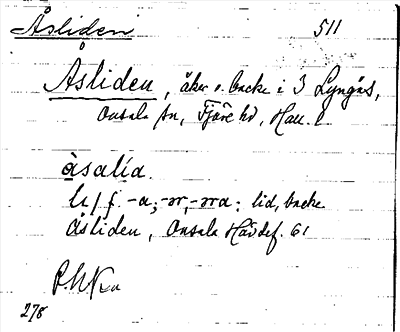 Åsliden 511
Åsliden, åker o. backe i 3 Lyngås,
Onsala sn, Fjäre hd, Hall. l.
àsalía.
li/f. -a; -ər, -əra: lid, backe
Åsliden, Onsala Hävdef. 61
278